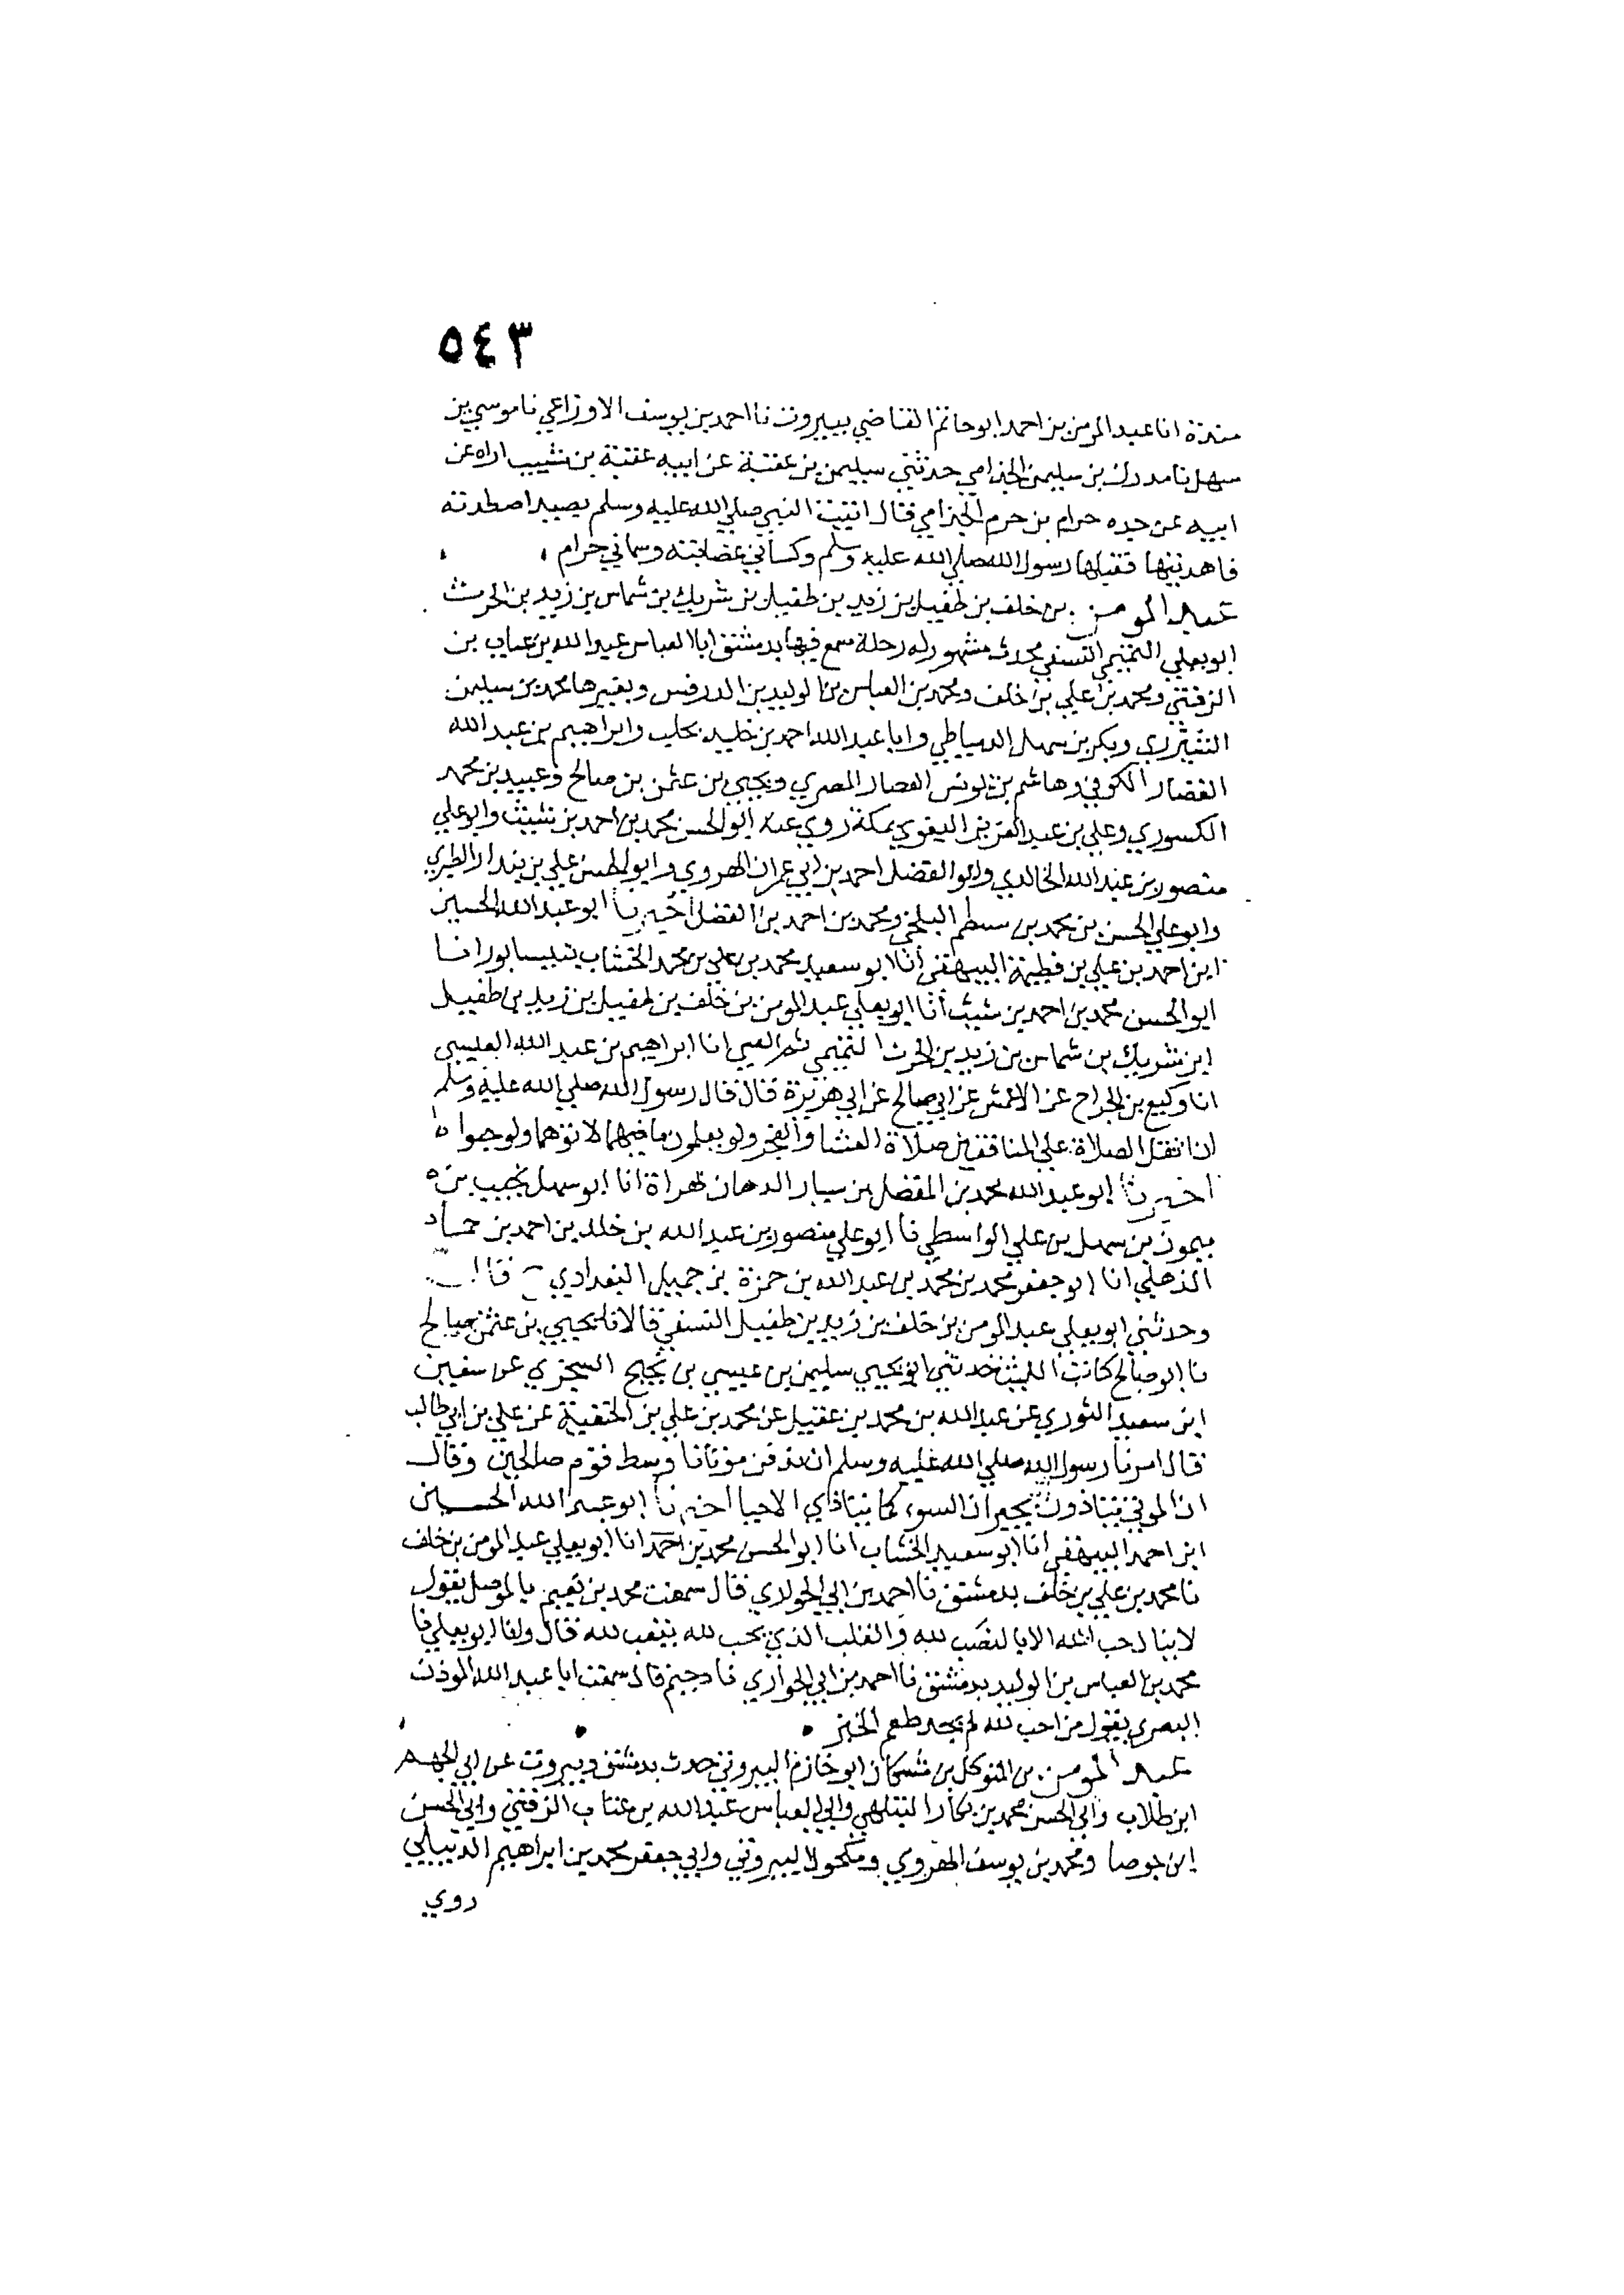 ٥٤٣
مندة انا عبد المومن بن احمد ابو حاتم القاضي ببيروت نا احمد بن يوسف الاوزاعي نا موسي بن
سهل نا مدرك بن سليمن الجذامي حدثني سليمن بن عقبة عن ابيه عقبة بن شبيب اراه عن
ابيه عن جده حرام بن حرم الجذامي قال اتيت النبي صلي الله عليه وسلم بصيد اصطدته
فاهديتها فقبلها رسول الله صلي الله عليه وسلم وكساني عصابته وسماني حرام
عبد المومن بن خلف بن طفيل بن زيد بن طفيل بن شريك بن شماس بن زيد بن الحرث
ابو يعلي التميمي النسفي محدث مشهور له رحلة سمع فيها بدمشق ابا العباس عبد الله بن عتاب بن
الزفتي ومحمد بن علي بن خلف ومحمد بن العباس بن الوليد بن الدرفس وبغيرها محمد بن سليمن
وبكر بن سهل الدمياطي وابا عبد الله احمد بن خليد بحلب وابراهيم بن عبد الله
القصار الكوفي وهاشم بن يونس القصار المصري ويحيي بن عثمن بن صالح وعبيد بن محمد
الكسوري وعلي بن عبد العزيز البغوي بمكة روي عنه ابو الحسن محمد بن احمد بن شبيب وابو علي
منصور بن عبد الله الخالدي وابو الفضل احمد بن ابي عمران الهروي وابو الحسن علي بن بندار الطبري
وابو علي الحسن بن محمد بن البلخي ومحمد بن احمد بن الفضل اخبرنا ابو عبد الله الحسين
ابن احمد بن علي بن فطيمة البيهقي انا ابو سعيد محمد بن علي بن محمد الخشاب بنيسابور انا
ابو الحسن محمد بن احمد بن شبيب انا ابو يعلي عبد المومن بن خلف بن طفيل بن زيد بن طفيل
ابن شريك بن شماس بن زيد بن الحرث التميمي ثم العمي انا ابراهيم بن عبد الله العبسي
انا وكيع بن الجراح عن الاعمش عن ابي صالح عن ابي هريرة قال قال رسول الله صلي الله عليه وسلم
ان اثقل الصلاة علي المنافقين صلاة العشا والفجر ولو يعلمون ما فيهما لاتوهما ولو حبوا
اخبرنا ابو عبد الله محمد بن المفضل بن سيار الدهان بهراة انا ابو سهل نجيب بن
ميمون بن سهل بن علي الواسطي نا ابو علي منصور بن عبد الله بن خلد بن احمد بن حماد
الذهلي انا ابو جعفر محمد بن محمد بن عبد الله بن حمزة بن جميل البغدادي قال
وحدثني ابو يعلي عبد المومن بن خلف بن زيد بن طفيل النسفي قالا نا يحيي بن عثمن بن صالح
نا ابو صالح كاتب الليث حدثني ابو يحيي سليمن بن عيسي بن نجيح السجزي عن سفين
ابن سعيد الثوري عن عبد الله بن محمد بن عقيل عن محمد بن علي بن الحنفية عن علي بن ابي طالب
قال امرنا رسول الله صلي الله عليه وسلم ان ندفن موتانا وسط قوم صالحين وقال
ان الموتي يتاذون بجيران السوء كما يتاذي الاحيا اخبرنا ابو عبد الله الحسين
ابن احمد البيهقي انا ابو سعيد الخشاب انا ابو الحسن محمد بن احمد انا ابو يعلي عبد المومن بن خلف
نا محمد بن علي بن خلف بدمشق نا احمد بن ابي الحواري قال سمعت محمد بن تميم بالموصل يقول
لا ينال حب الله الا بالنصب لله والقلب الذي يحب لله يتعب لله قال وانا ابو يعلي نا
محمد بن العباس بن الوليد بدمشق نا احمد بن ابي الحواري نا دحيم قال سمعت ابا عبد الله الموذن
البصري يقول من احب لله لم يجد طعم الخبز
عبد المومن بن المتوكل بن مشكان ابو خازم البيروتي حدث بدمشق وبيروت عن ابي الجهم
ابن طلاب وابي الحسن محمد بن بكار البتلهي وابي العباس عبد الله بن عتاب الزفتي وابي الحسن
ابن جوصا ومحمد بن يوسف الهروي ومكحولا البيروتي وابي جعفر محمد بن ابراهيم الديبلي
روي